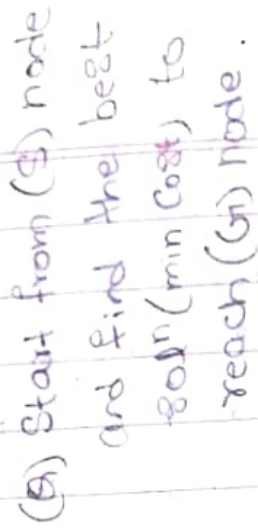 (Q) Start from (S) node
and find the best
soln (min cost) to
reach (G) node.